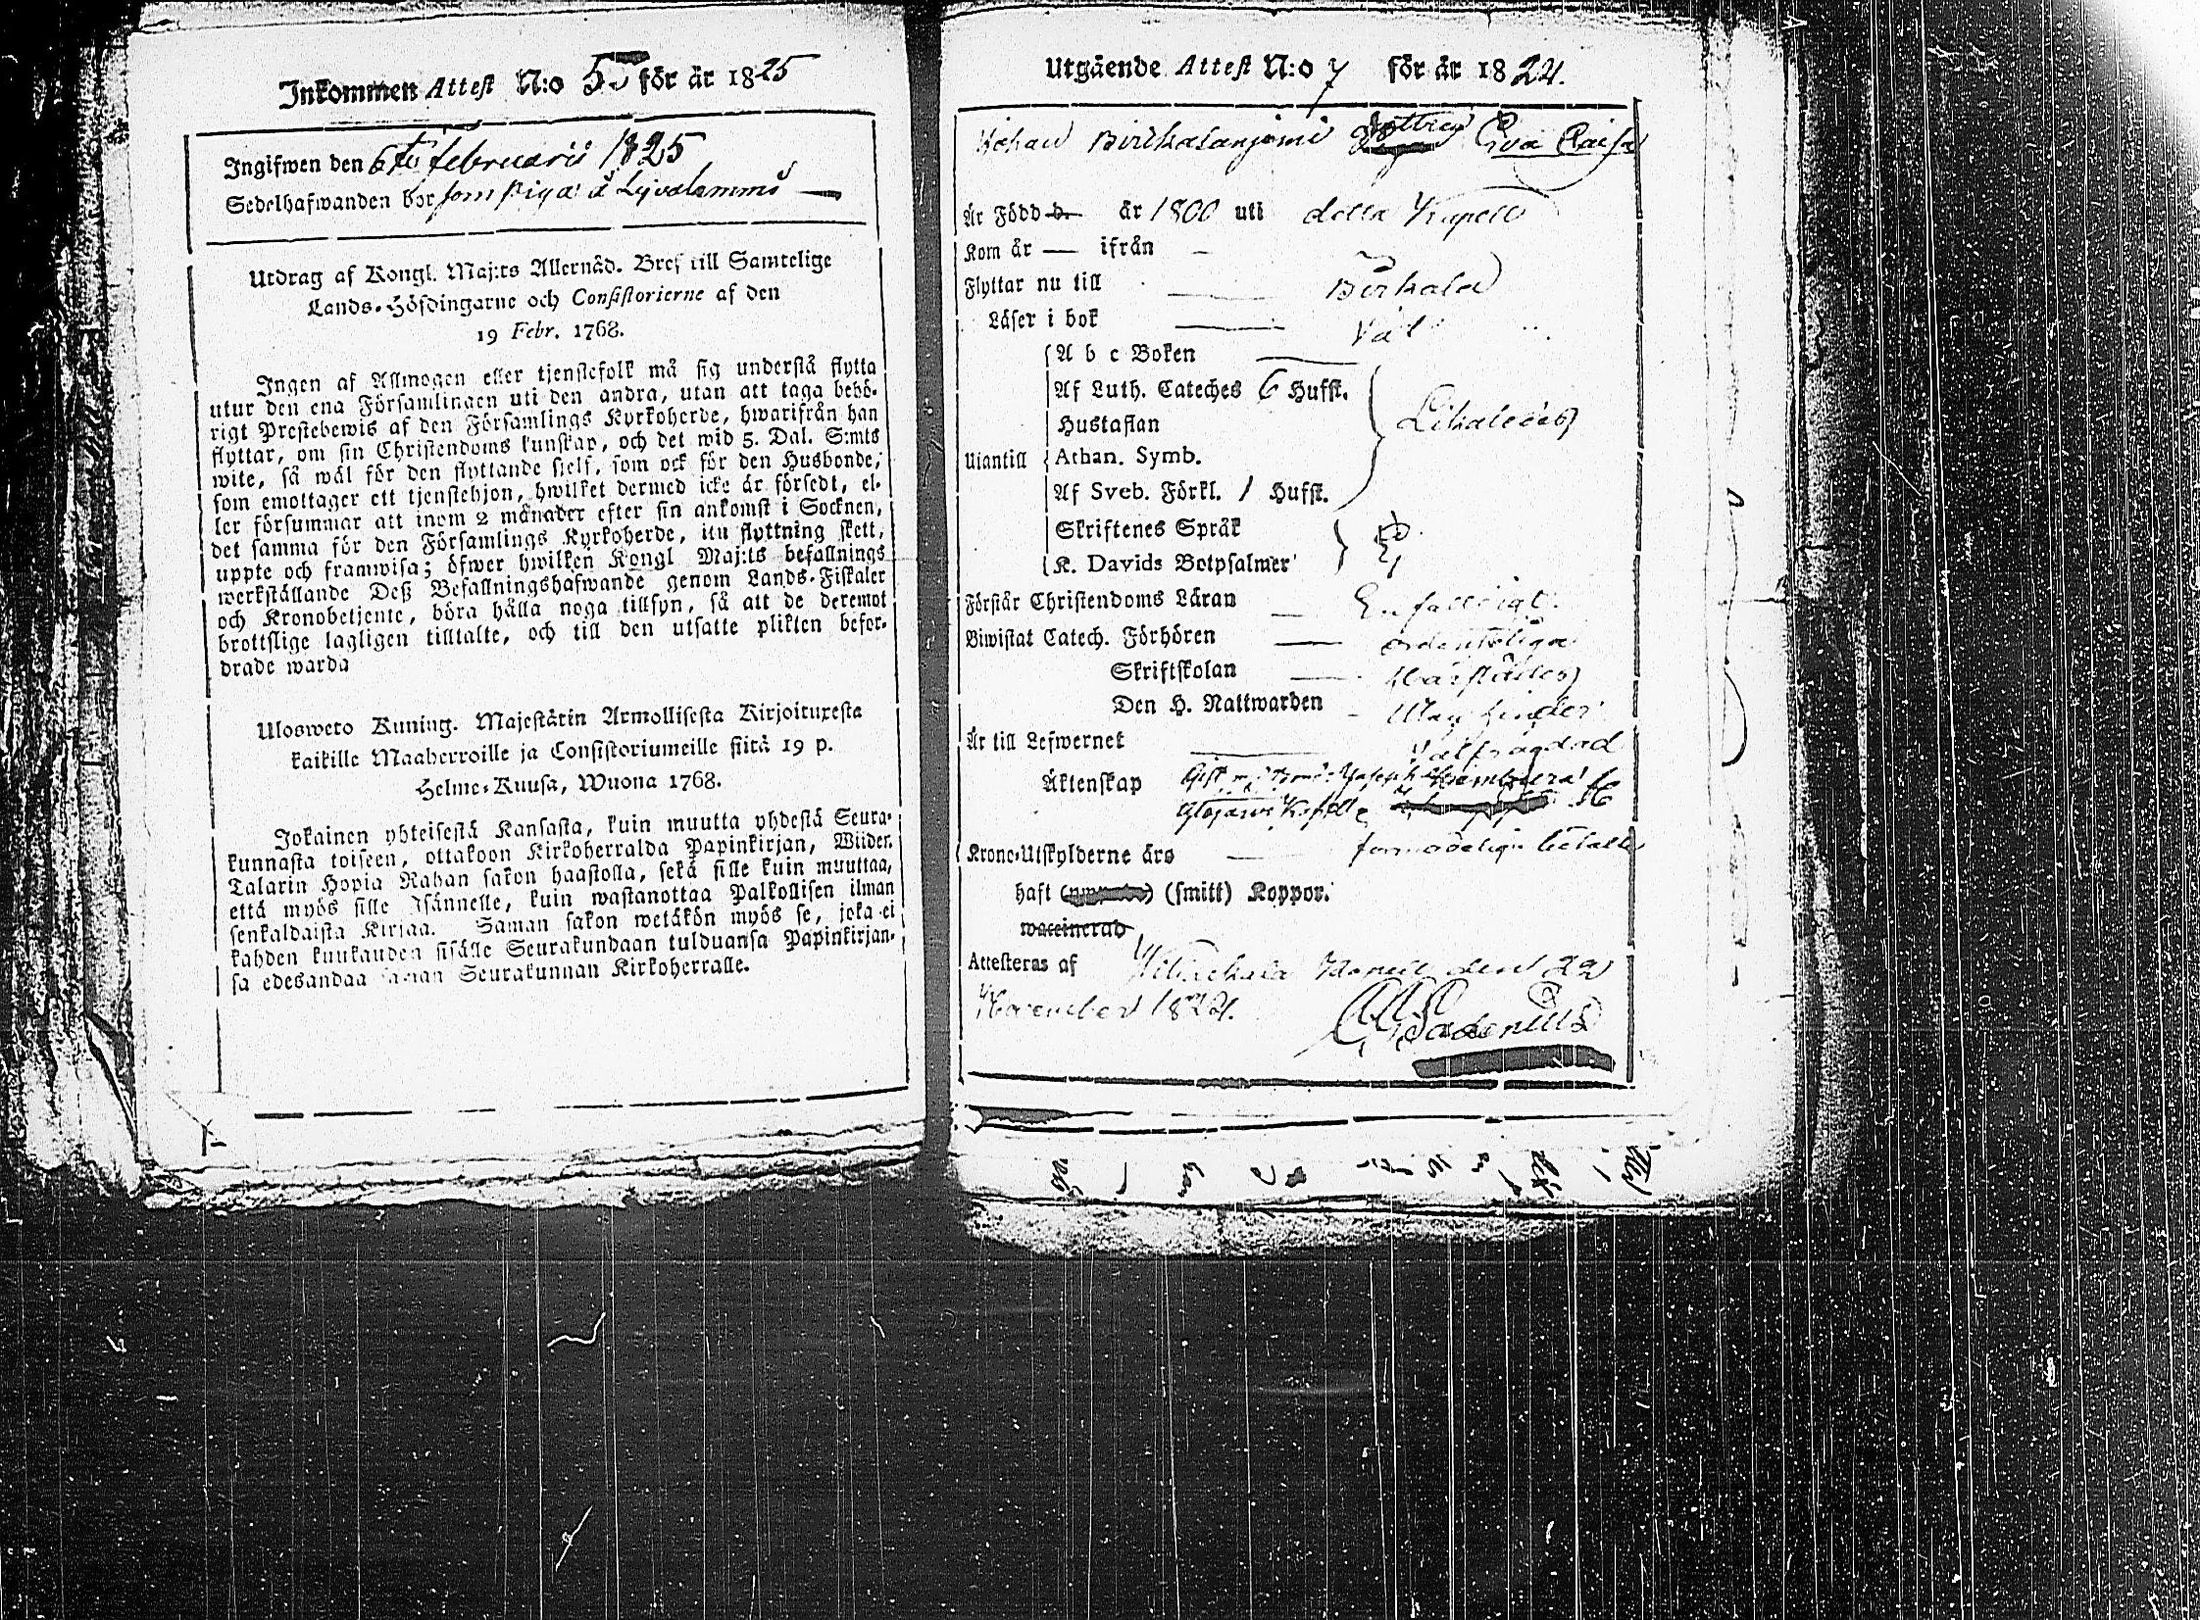 Inkommen Attest N:o 55 för år 1825
Ingifwen den 6te februarii 1825
Sedelhafwanden bor som piga å
Utdrag af Kongl. Maj:ts Allernåd. Bref till Samtelige
Lands-Höfdingarne och Consistorierne af den
19 Febr. 1768.
Ingen af Allmogen eller tjenstefolk må sig understå flytta
utur den ena Församlingen uti den andra, utan att taga behö-
rigt Prestebewis af den Församlings Kyrkoherde, hwarifrån han
flyttar, om sin Christendoms kunskap, och det wid 5. Dal. S:mts
wite, så wäl för den flyttande sjelf, som ock för den Husbonde,
som emottager ett tjenstehjon, hwilket dermed icke är försedt, el-
ler försummar att inom 2 månader efter sin ankomst i Socknen,
det samma för den Församlings Kyrkoherde, itu flyttning skett,
uppte och framwisa; öfwer hwilken Kongl Maj:ts befallnings
werkställande Deß Befallningshafwande genom Lands-Fiskaler
och Kronobetjente, böra hålla noga tillsyn, så att de deremot
brottslige lagligen tilltalte, och till den utsatte plikten befor-
drade warda
Uloswето Kuning. Majestätin Armollisesta Kirjoituxesta
kaikille Maaherroille ja Consistoriumeille siitä 19 p.
Helme-Kuusa, Wuona 1768.
Jokainen yhteisestä Kansasta, kuin muutta yhdestä Seura-
kunnasta toiseen, ottakoon Kirkoherralda Papinkirjan, Wiiden
Talarin Hopia Rahan sakon haastolla, sekä sille kuin muuttaa,
että myös sille Isännelle, kuin wastanottaa Palkollisen ilman
senkaldaista Kirjaa. Saman sakon wetäkön myös se, joka ei
kahden kuukauden sisälle Seurakundaan tulduansa Papinkirjan-
sa edesandaa saman Seurakunnan Kirkoherralle.
Utgående Attest N:o 7 för år 1824.
Johan dottren Eva Caisa
Är Född d. år 1800 uti detta Kapell
Kom år — ifrån —
Flyttar nu till Birkala
Läser i bok Väl
A b c Boken
Af Luth. Cateches 6 Hufst.
Hustaflan
Likaledes
Utantill Athan. Symb.
Af Sveb. Förkl. 1 Hufst.
Skriftenes Språk
K. Davids Botpsalmer Ej
Förstår Christendoms Läran Enfaldigt
Biwistat Catech. Förhören ordenteligen
Skriftskolan
Den H. Nattwarden
Är till Lefwernet Välfrägdad
Äktenskap
Krono-Utskylderne äro betalte
haft (smitt) Koppor.
waccinerad
Attesteras af den 22
November 1824.